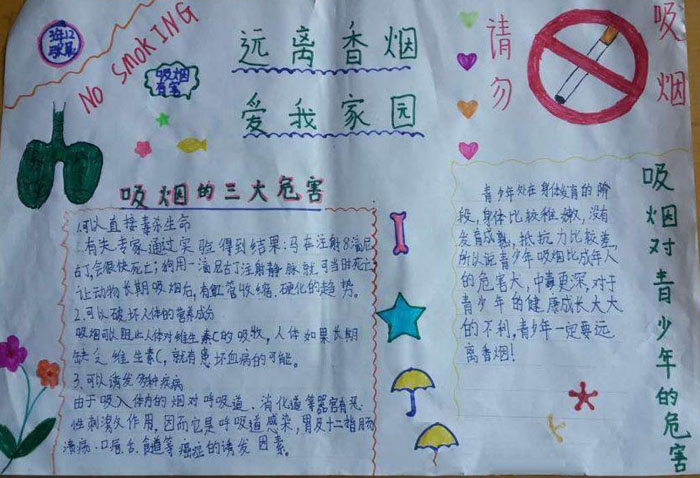 NO SMOKING
吸烟
有害
远离香烟
爱我家园
请勿
吸烟
吸烟的三大危害
1.可以直接毒杀生命
有关专家通过实验得到结果:马在注射8滴尼
古丁会很快死亡;狗用一滴尼古丁注射静脉就可当时死亡
让动物长期吸烟后,有血管收缩、硬化的趋势。
2.可以破坏人体的营养成分
吸烟可以阻止人体对维生素C的吸收,人体如果长期
缺乏维生素C,就有患坏血病的可能。
3.可以诱发多种疾病
由于吸入体内的烟对呼吸道、消化道等器官有恶
性刺激久作用,因而它是呼吸道感染,胃及十二指肠
溃疡、口唇、舌、食道等癌症的诱发因素。
吸烟对青少年的危害
青少年处在身体发育的阶
段,身体比较稚嫩,没有
发育成熟,抵抗力比较差,
所以说青少年吸烟比成年人
的危害大,中毒更深,对于
青少年的健康成长大大
的不利,青少年一定要远
离香烟!